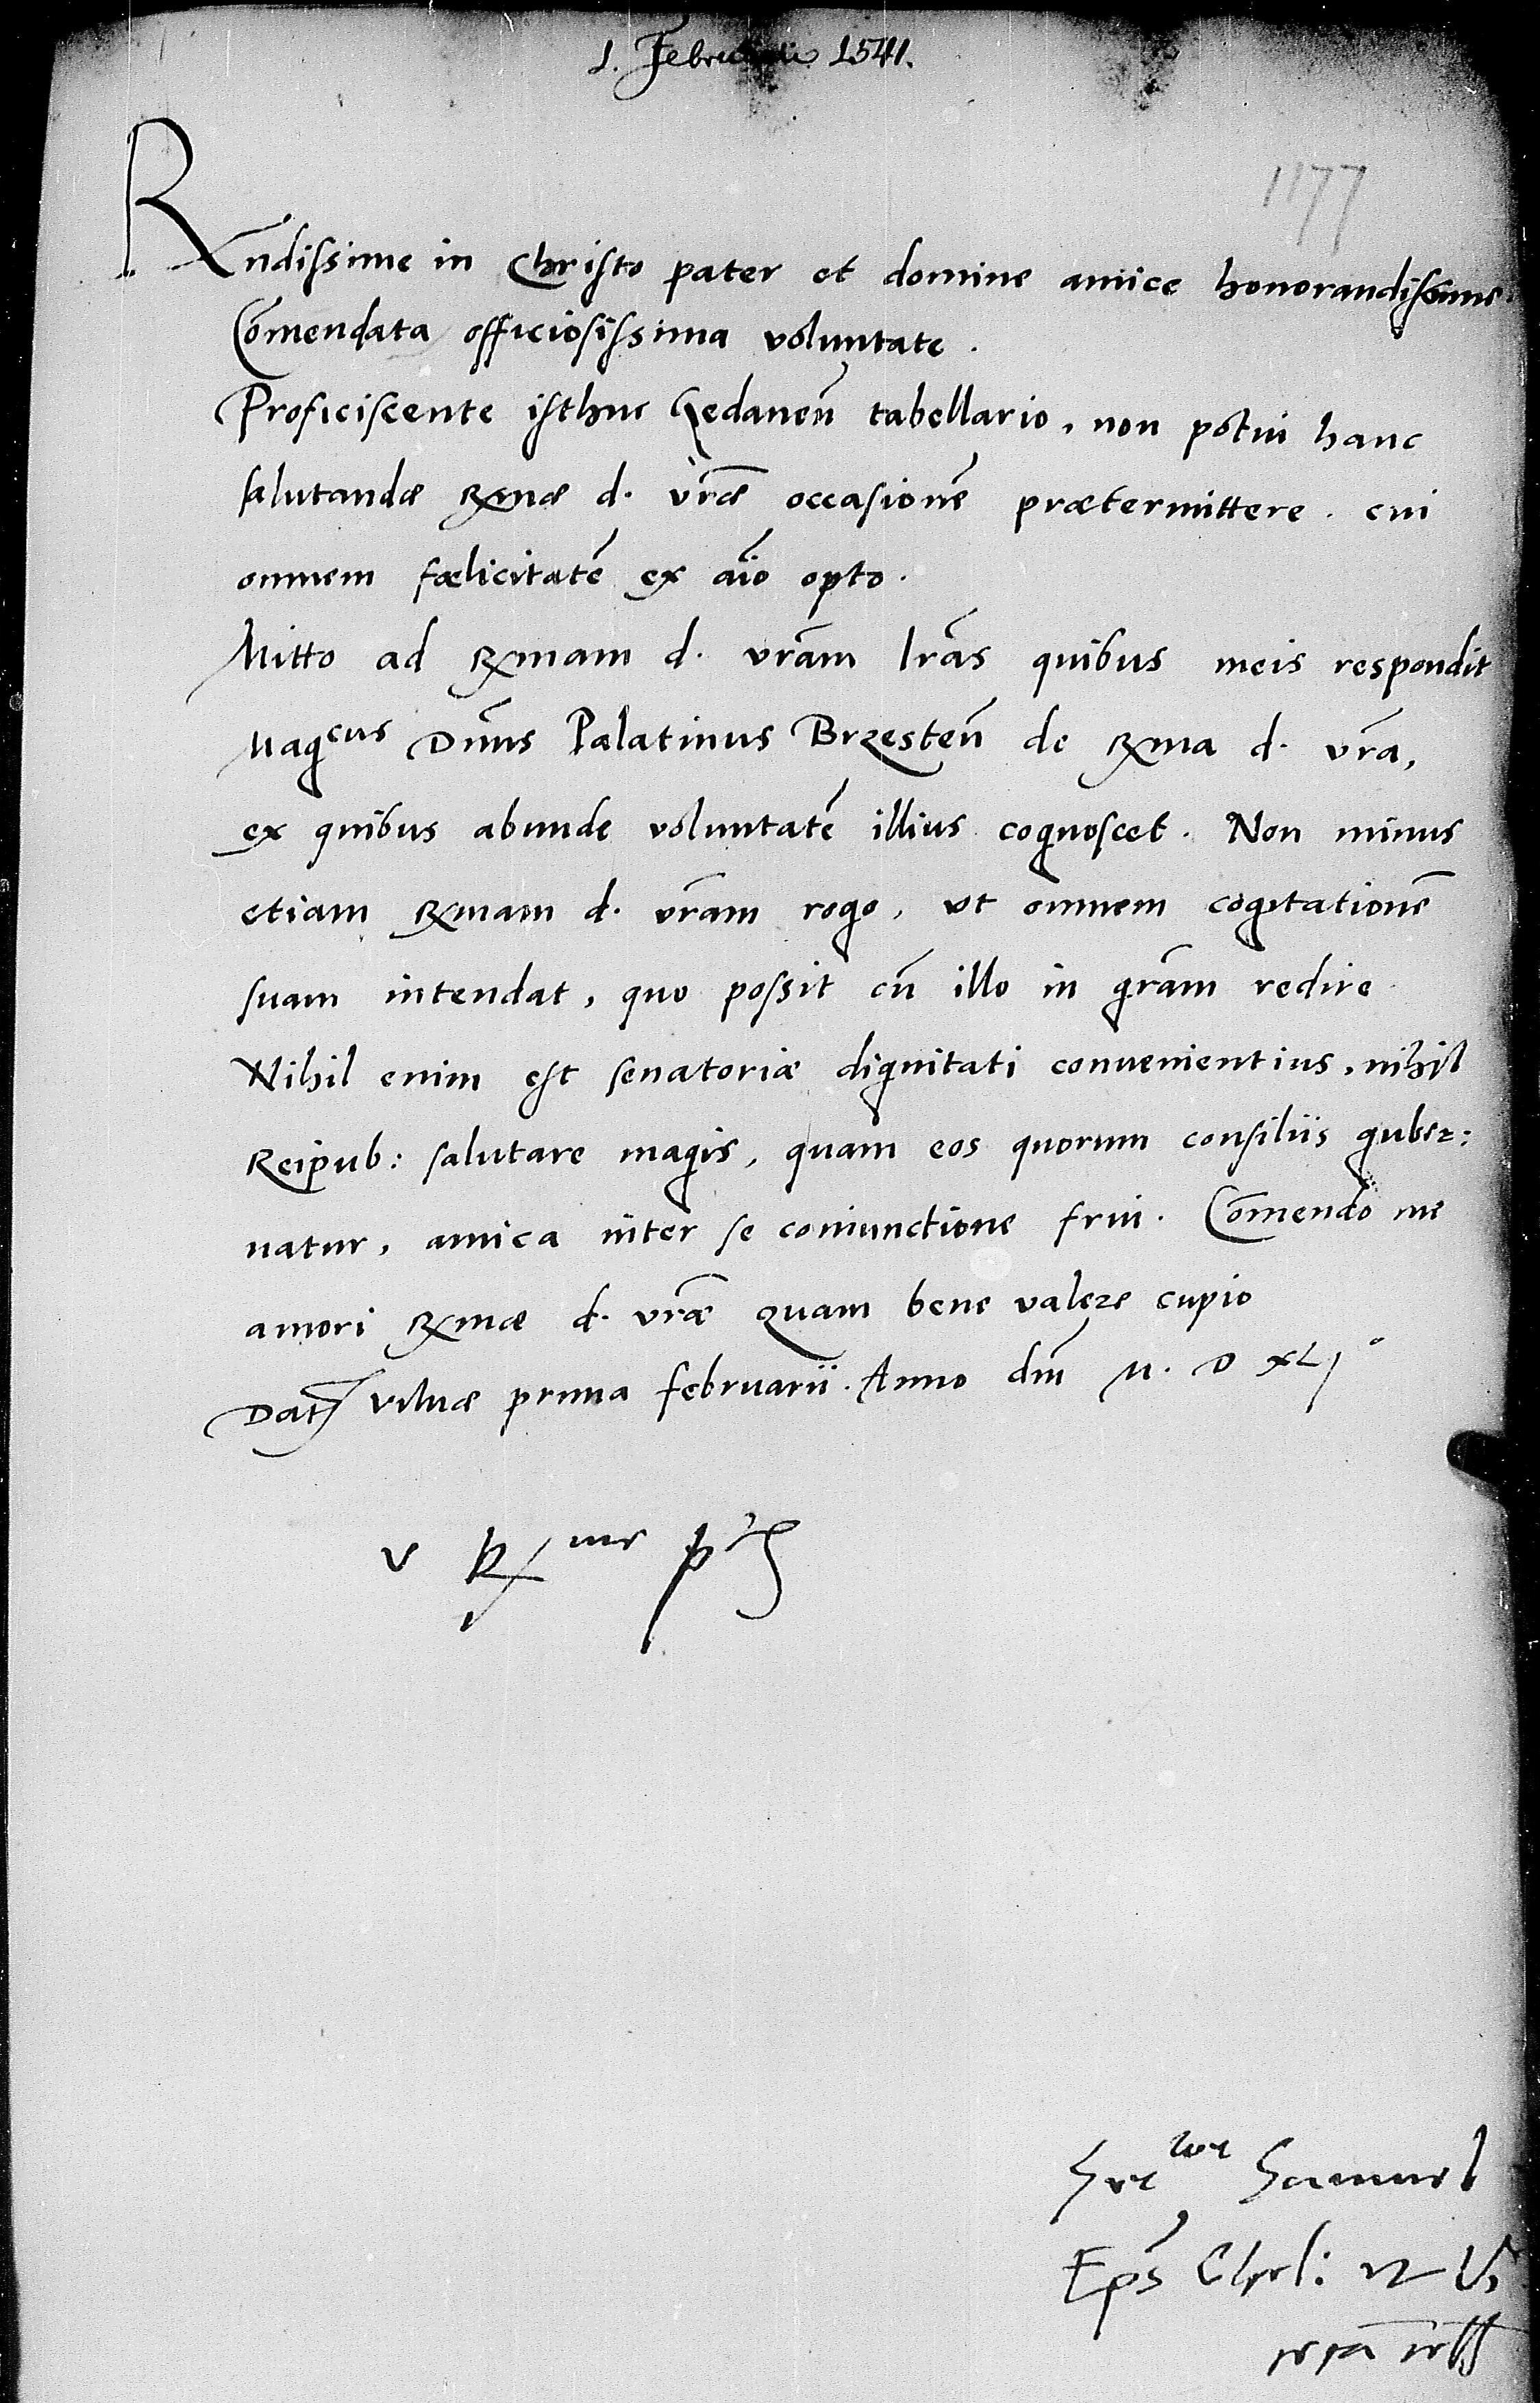 1. Februarii 1541.
1177
Rndissime in Christo pater et domine amice honorandissime.
Com̃endata officiosissima voluntate.
Proficiscente isthuc Gedaneñ tabellario, non potui hanc
salutandæ Rxmæ d. vr̃æ occasionẽ prætermittere. cui
omnem fœlicitatẽ ex aĩo opto.
Mitto ad Rxmam d. vr̃am lr̃as quibus meis respondit
Magcus Dñus Palatinus Brzesteñ de Rxma d. vr̃a,
ex quibus abunde voluntatẽ illius cognoscet. Non minus
etiam Rxmam d. vr̃am rogo, vt omnem cogitationẽ
suam intendat, quo possit cũ illo in gr̃am redire
Nihil enim est senatoriæ dignitati convenientius, nihil
Reipub: salutare magis, quam eos quorum consiliis guber:
natur, amica inter se coniunctione frui. Com̃endo me
amori Rxmæ d. vr̃æ quam bene valere cupio
Dat Vilnæ prima februarii. Anno dñi M. D XLjº
V Rxme p
Samuel
Eps̃